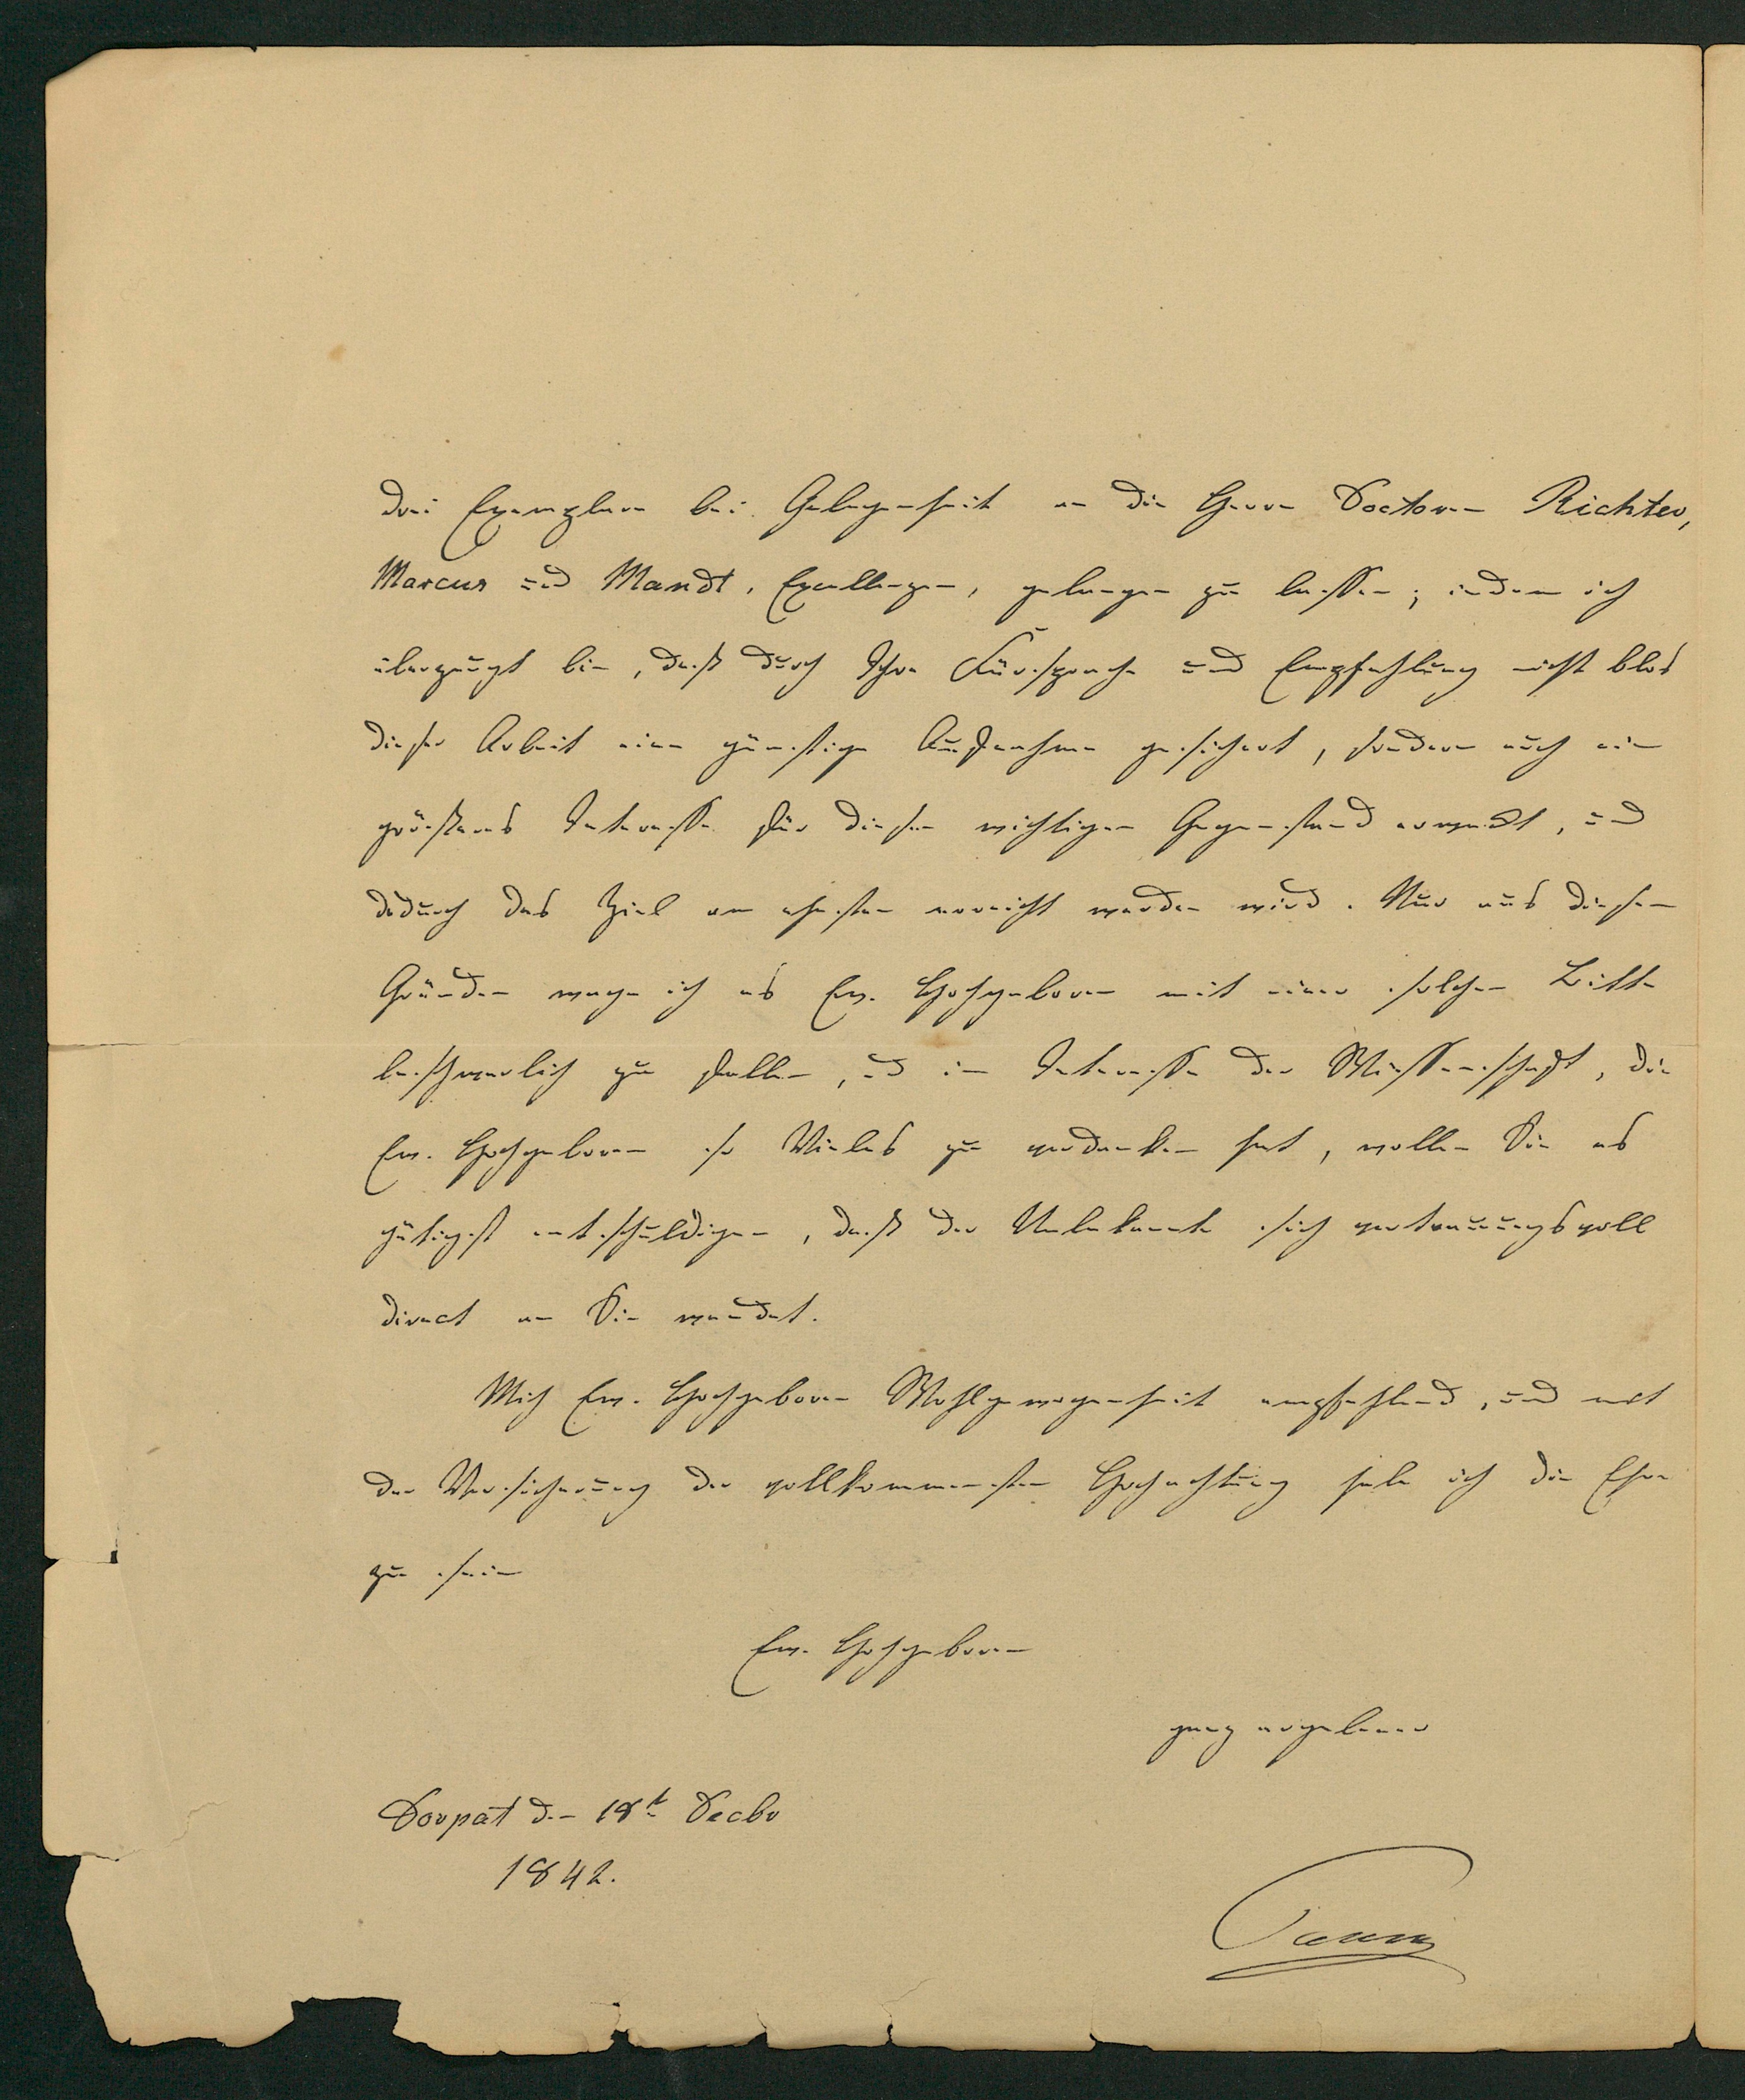 drei Exemplare bei Gelegenheit an die Herrn Doctoren Richter,
Marcus und Mandt, Excellenzen, gelangen zu lassen; indem ich
überzeugt bin, daß durch Ihre Fürsprache und Empfehlung nicht blos
dieser Arbeit eine günstige Aufnahme gesichert, sondern auch ein
größeres Interesse für diesen wichtigen Gegenstand erweckt, und
dadurch das Ziel am ehesten erreicht werden wird. Nur aus diesen
Gründen wage ich es Ew. Hochgeboren mit einer solchen Bitte
beschwerlich zu fallen, und im Interesse der Wissenschaft, die
Ew. Hochgeboren so Vieles zu verdanken hat, wollen Sie es
gütigst entschuldigen, daß der Unbekannte sich vertrauungsvoll
direct an Sie wendet.
Mich Ew. Hochgeboren Wohlgewogenheit empfehlend, und mit
der Versicherung der vollkommensten Hochachtung habe ich die Ehre
zu sein
Ew. Hochgeboren
ganz ergebener
Dorpat den 18t Decbr
1842.